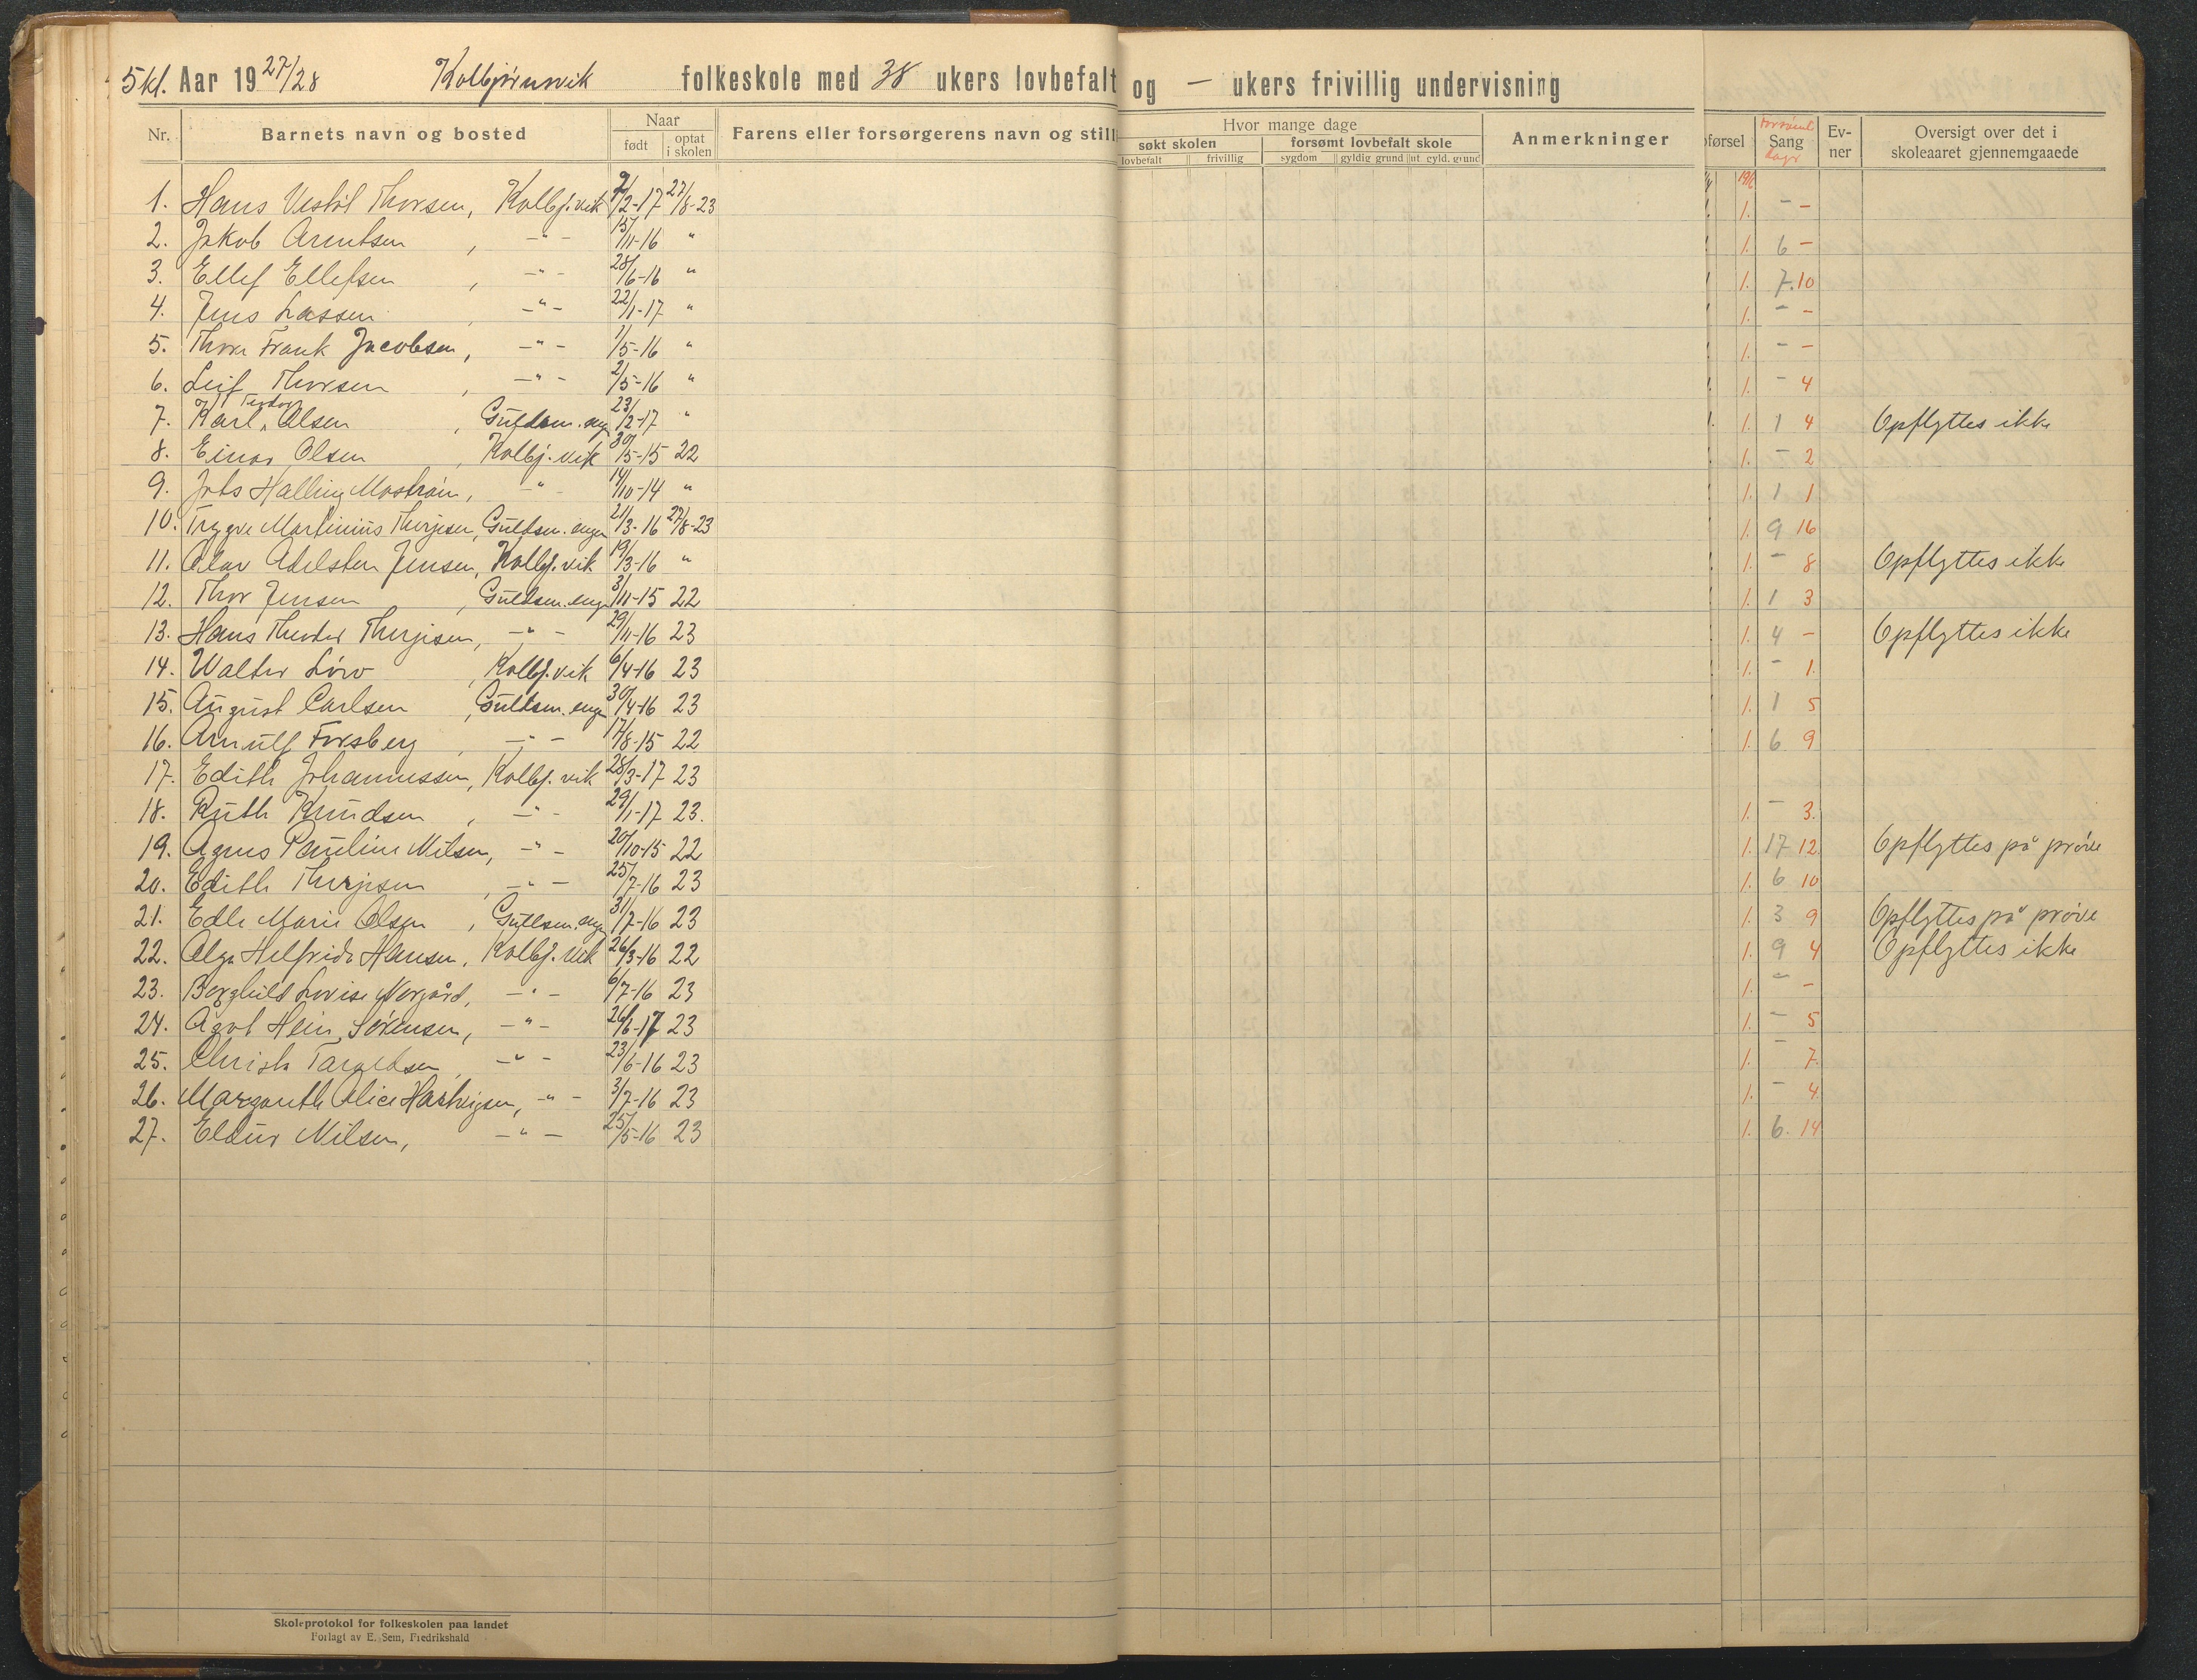 5 kl. Aar 19 27/28 Kolbjørnsvik folkeskole med 38 ukers lovbefalt og - ukers frivillig undervisning
Nr. Barnets navn og bosted Naar født optat i skolen Farens eller forsørgerens navn og still
Hvor mange dage søkt skolen lovbefalt frivillig forsømt lovbefalt skole sygdom gyldig grund ut. gyld. grund Anmerkninger
førsel Forsømt Sang dage Ev-ner Oversigt over det i skoleaaret gjennemgaaede
1. Hans Vestøl Thorsen, Kolbj.vik 7/2-17 27/8-23 1. - -
2. Jakob Arntsen, -"- 15/11-16 " 1. 6 -
3. Ellef Ellefsen, -"- 28/6-16 " 1. 7. 10
4. Jens Lassen, -"- 22/1-17 " 1. - -
5. Thor Frank Jacobsen, -"- 1/5-16 " 1. - -
6. Leif Thorsen, -"- 2/5-16 " 1. - 4
7. Karl Teodor Olsen, Guldsm.eng 23/2-17 " 1. 1 4 Opflyttes ikke
8. Einar Olsen, Kolbj.vik 30/5-15 22 1. - 2
9. Halling -"- 14/10-14 " 1. 1 1
10. Trygve Martinius Therjesen, Guldsm.engen 21/3-16 27/8-23 1. 9 16
11. Olav Adelsten Jensen, Kolbj.vik 19/3-16 " 1. - 8 Opflyttes ikke
12. Thor Jensen, Guldsm.eng 3/11-15 22 1. 1 3
13. Hans Theodor Therjesen, -"- 29/11-16 23 1. 4 - Opflyttes ikke
14. Walter, Kolbj.vik 6/4-16 23 1. - 1.
15. August Carlsen, Guldsm.eng 30/4-16 23 1. 1 5
16. Arnulf Forsberg, -"- 17/8-15 22 1. 6 9
17. Edith Johannessen, Kolbj.vik 28/3-17 23
18. Ruth Knudsen, -"- 29/1-17 23. 1. - 3.
19. Agnes Pauline Nilsen, -"- 20/10-15 22 1. 17 12. Opflyttes på prøve
20. Edith Therjesen, -"- 25/7-16 23 1. 6 10
21. Edle Marie Olsen, Guldsm.eng 31/7-16 23 1. 3 9 Opflyttes på prøve
22. Olga Helfride Hansen, Kolbj.vik 26/3-16 22 1. 9 4 Opflyttes ikke
23. Borghild Lovise Norgård, -"- 6/7-16 23 1. - -
24. Agot Hein Sørensen, -"- 26/6-17 23 1. - 5
25. Christa Taraldsen, -"- 23/6-16 23 1. - 7.
26. Margareth Alice Hartvigsen, -"- 3/7-16 23 1. - 4
27. Eldur Nilsen, -"- 25/5-16 23 1. 6. 14
Skoleprotokol for folkeskolen paa landet
Forlagt av E. Sem, Fredrikshald